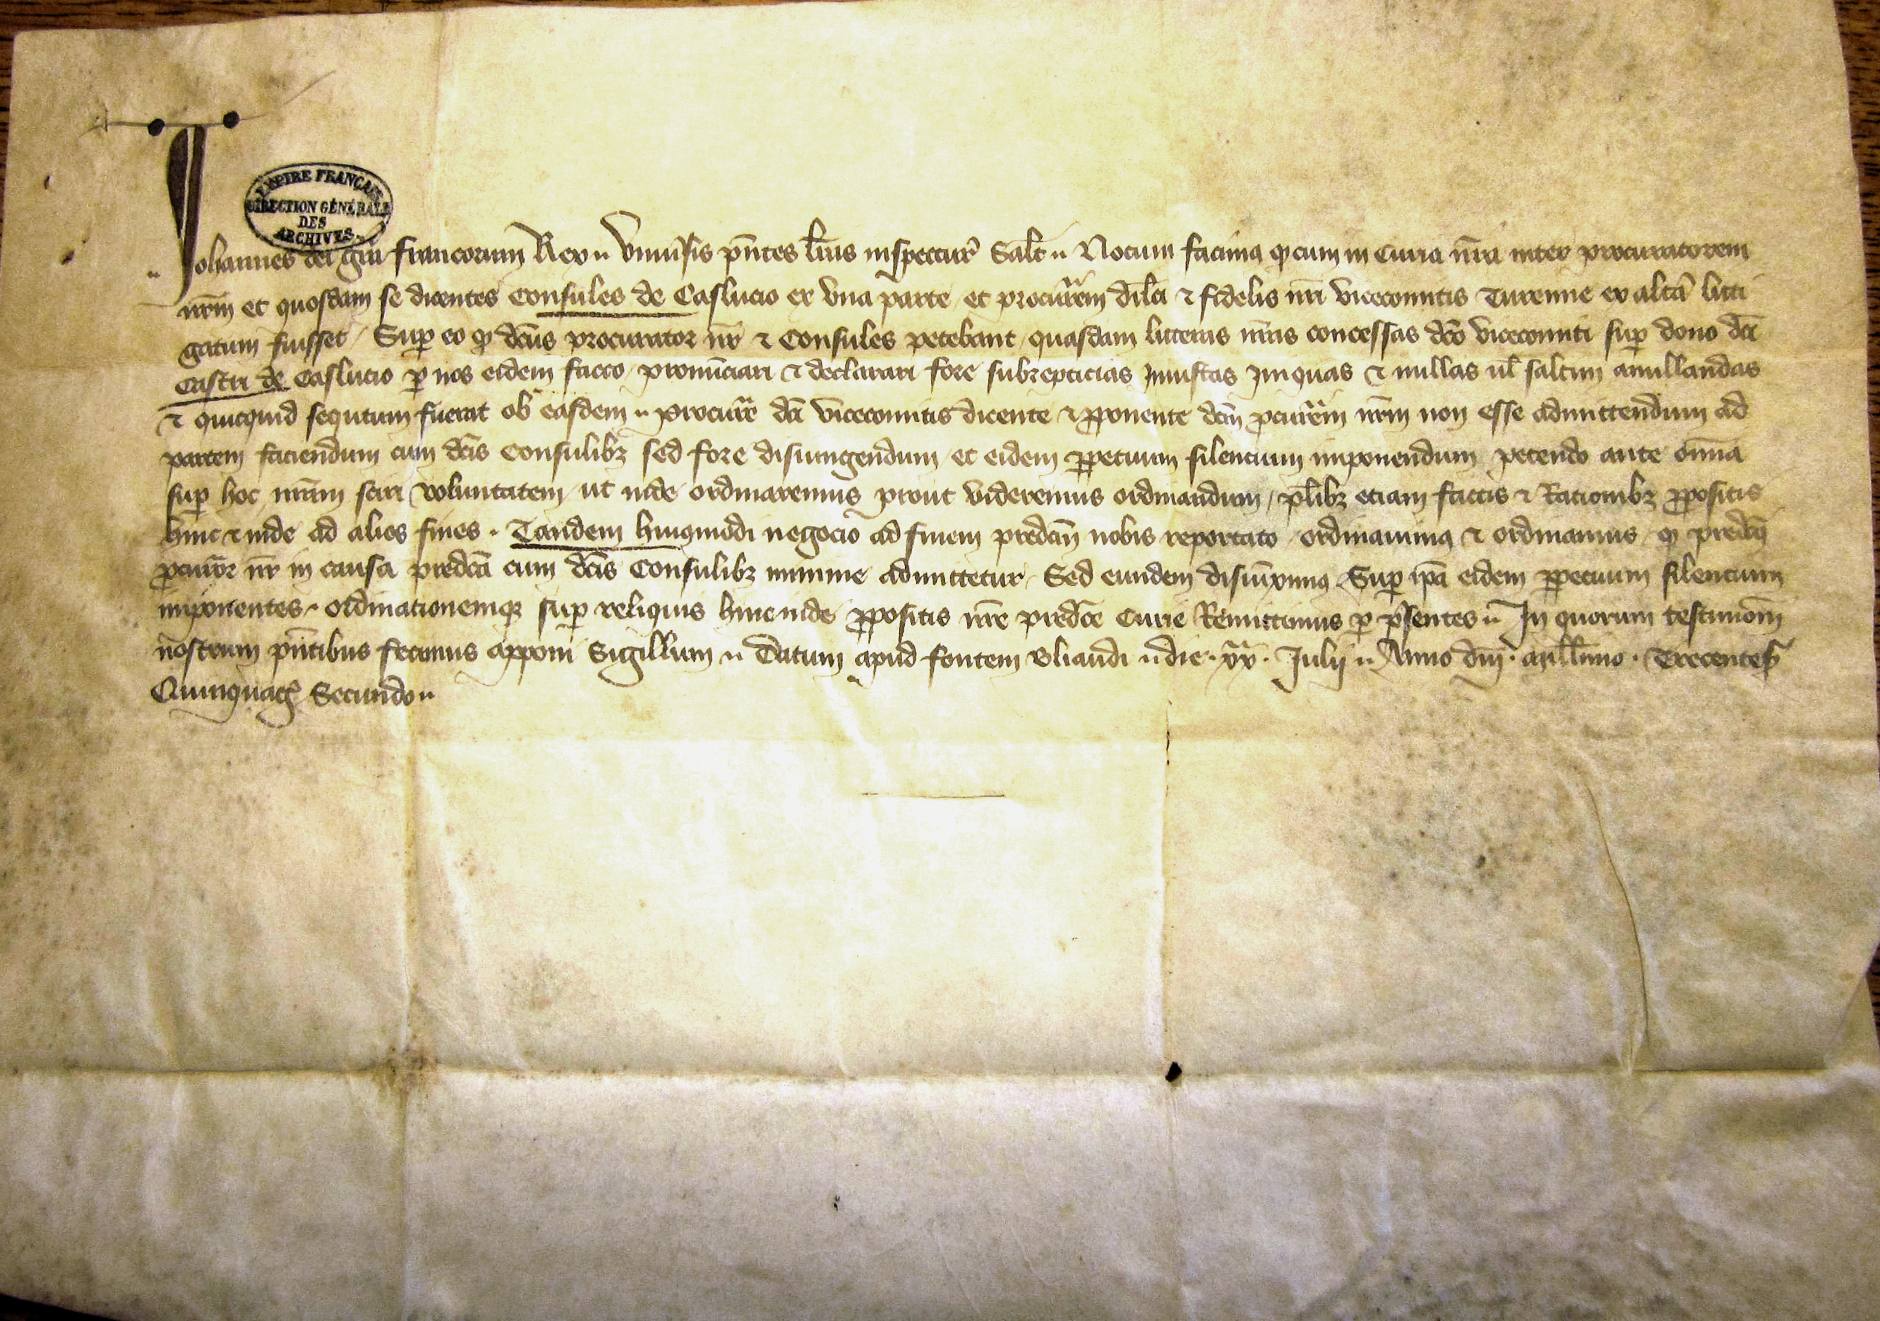 EMPIRE FRANÇAIS
DIRECTION GÉNÉRALE
DES
ARCHIVES
Johannes dei gra francorum Rex Universis pntes lras inspectur Salt Notum facimus q cum in Curia nra inter procuratorem
nrm et quosdam se dicentes Consules de Caslucio ex una parte et procurrem dilci & fidelis nri vicecomitis Turenne ex altra liti
gatum fuisset Sup eo q dcus procurator nr & Consules petebant quasdam litteras nras concessas dco vicecomiti sup dono dci
Castri de Caslucio p nos eidem facto pronunciari & declarari fore subrepticias Iniustas Iniquas & nullas ul saltim anullandas
& quicquid sequtum fuerat ob easdem procurre dci vicecomitis dicente & pponente dcm pcurrem nrm non esse admittendum ad
partem faciendum cum dcis Consulibz sed fore disiungendum et eidem ppetuum silencium imponendum petendo ante omnia
sup hoc nram sciri voluntatem ut inde ordinaremus prout videremus ordinandum plibz etiam factis & Racionibz ppositis
hinc & inde ad alios fines Tandem huiusmodi negocio ad finem predcm nobis reportato ordinavimus & ordinamus q predcus
pcuror nr in causa predca cum dcis Consulibz minime admittetur Sed eundem disiunximus Sup ipa eidem ppetuum silencium
imponentes ordinationemque sup reliquis hinc inde ppositis nre predce Curie Remittimus p psentes In quorum testimonm
nostrum pntibus fecimus apponi Sigillum Datum apud fontem Bliaudi die xx Julii Anno dni millmo Trecentesº
Quinquagº Secundo